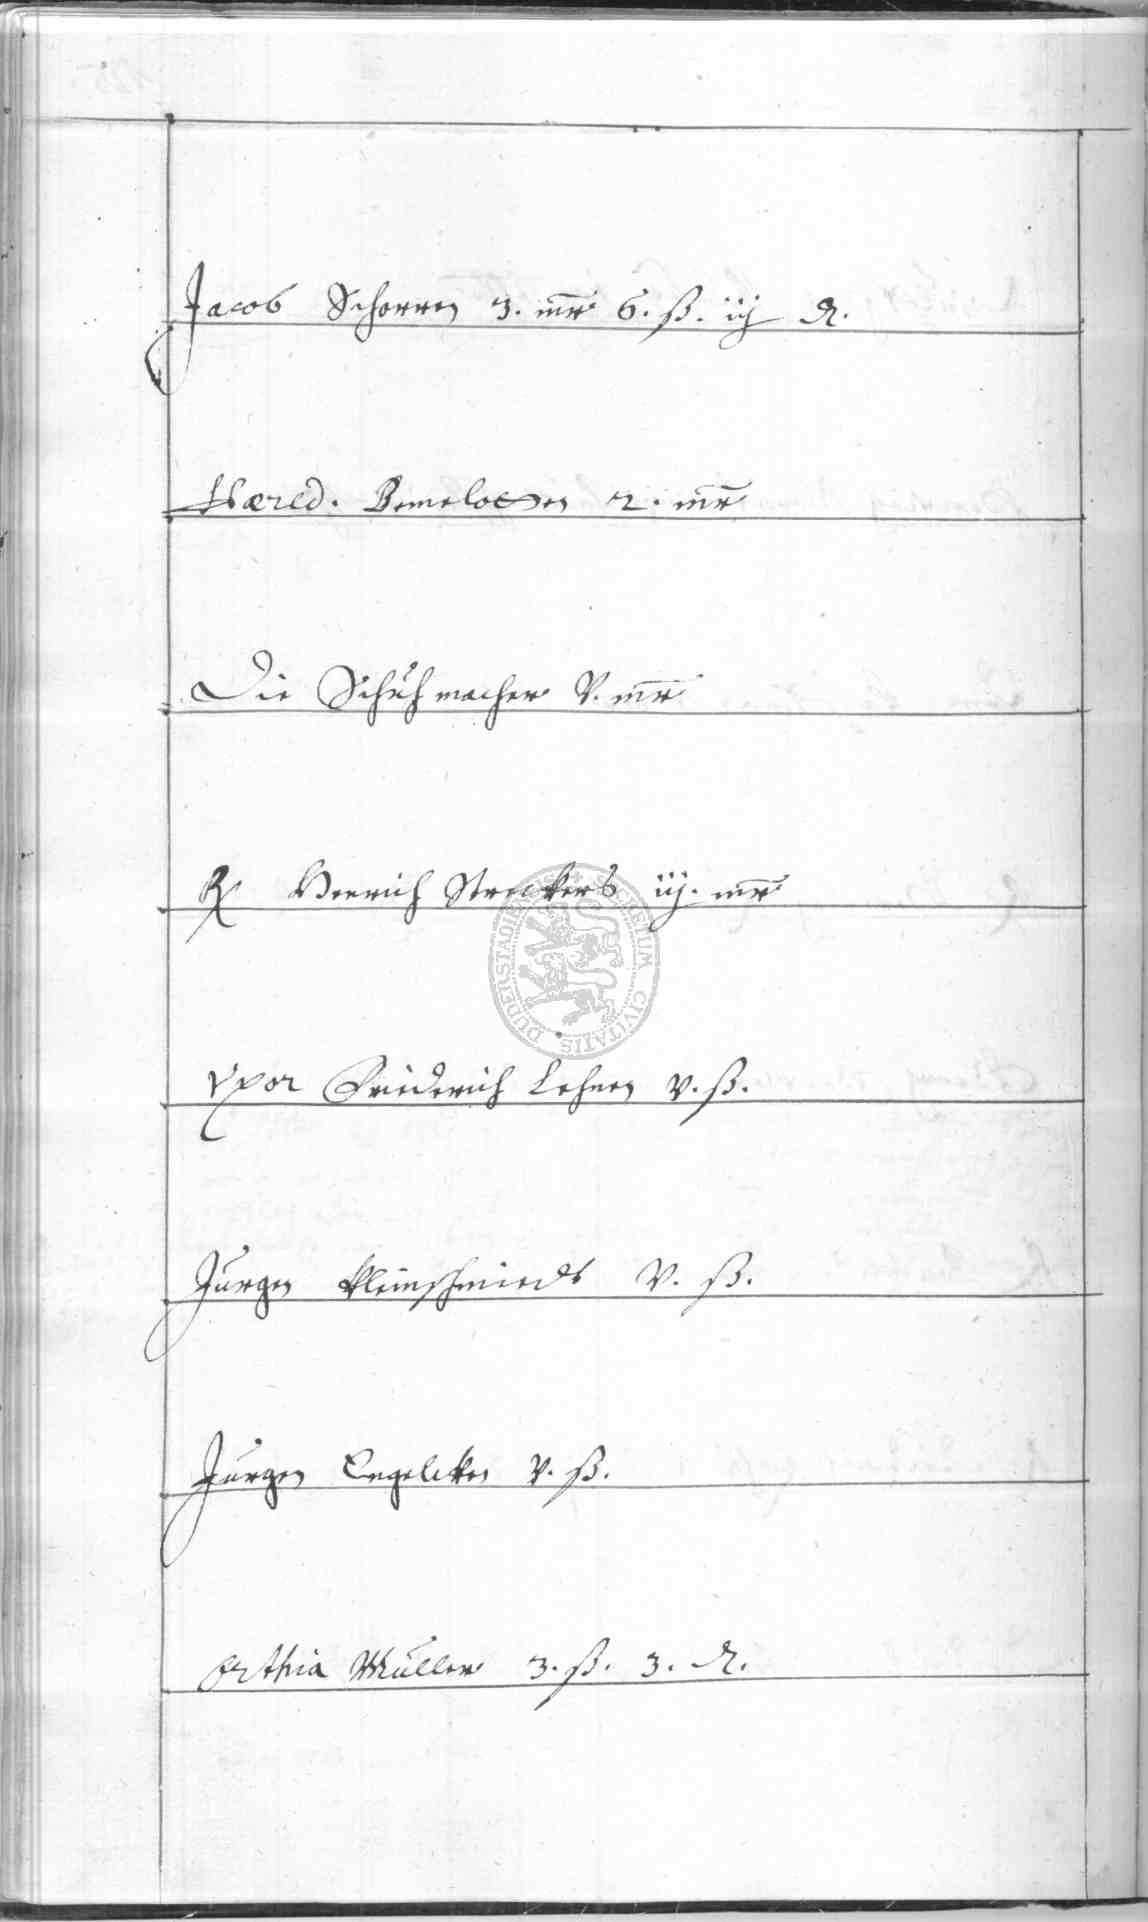 Jacob Schorren 3. mr 6. ß. iij ₰.
Hæred. Bemelosen 2. mr
Die Schuhmacher V. mr
Henrich Streckers iij. mr
Vxor Friederich Lehnen V. ß.
Jurgen Kleinschmieds V. ß.
Jurgen Engelcken V. ß.
Orthia Müller 3. ß. 3. ₰.
SECRETUM CIVITATIS DUDERSTADIENSIS